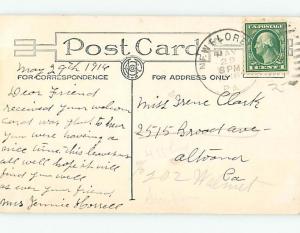 Post Card
May 29th 1914
FOR CORRESPONDENCE
FOR ADDRESS ONLY
NEW FLORE
MAY
29
6 PM
1 CENT 1
Dear Friend
received your welcom
card was glad to hear
you were having a
nice time this leaves us
all well hope it will
find you well
as ever your friend
Mrs Jennie Horrell
Miss Irene Clark
2515 Broad ave-
altoona
Pa
102 Walnut